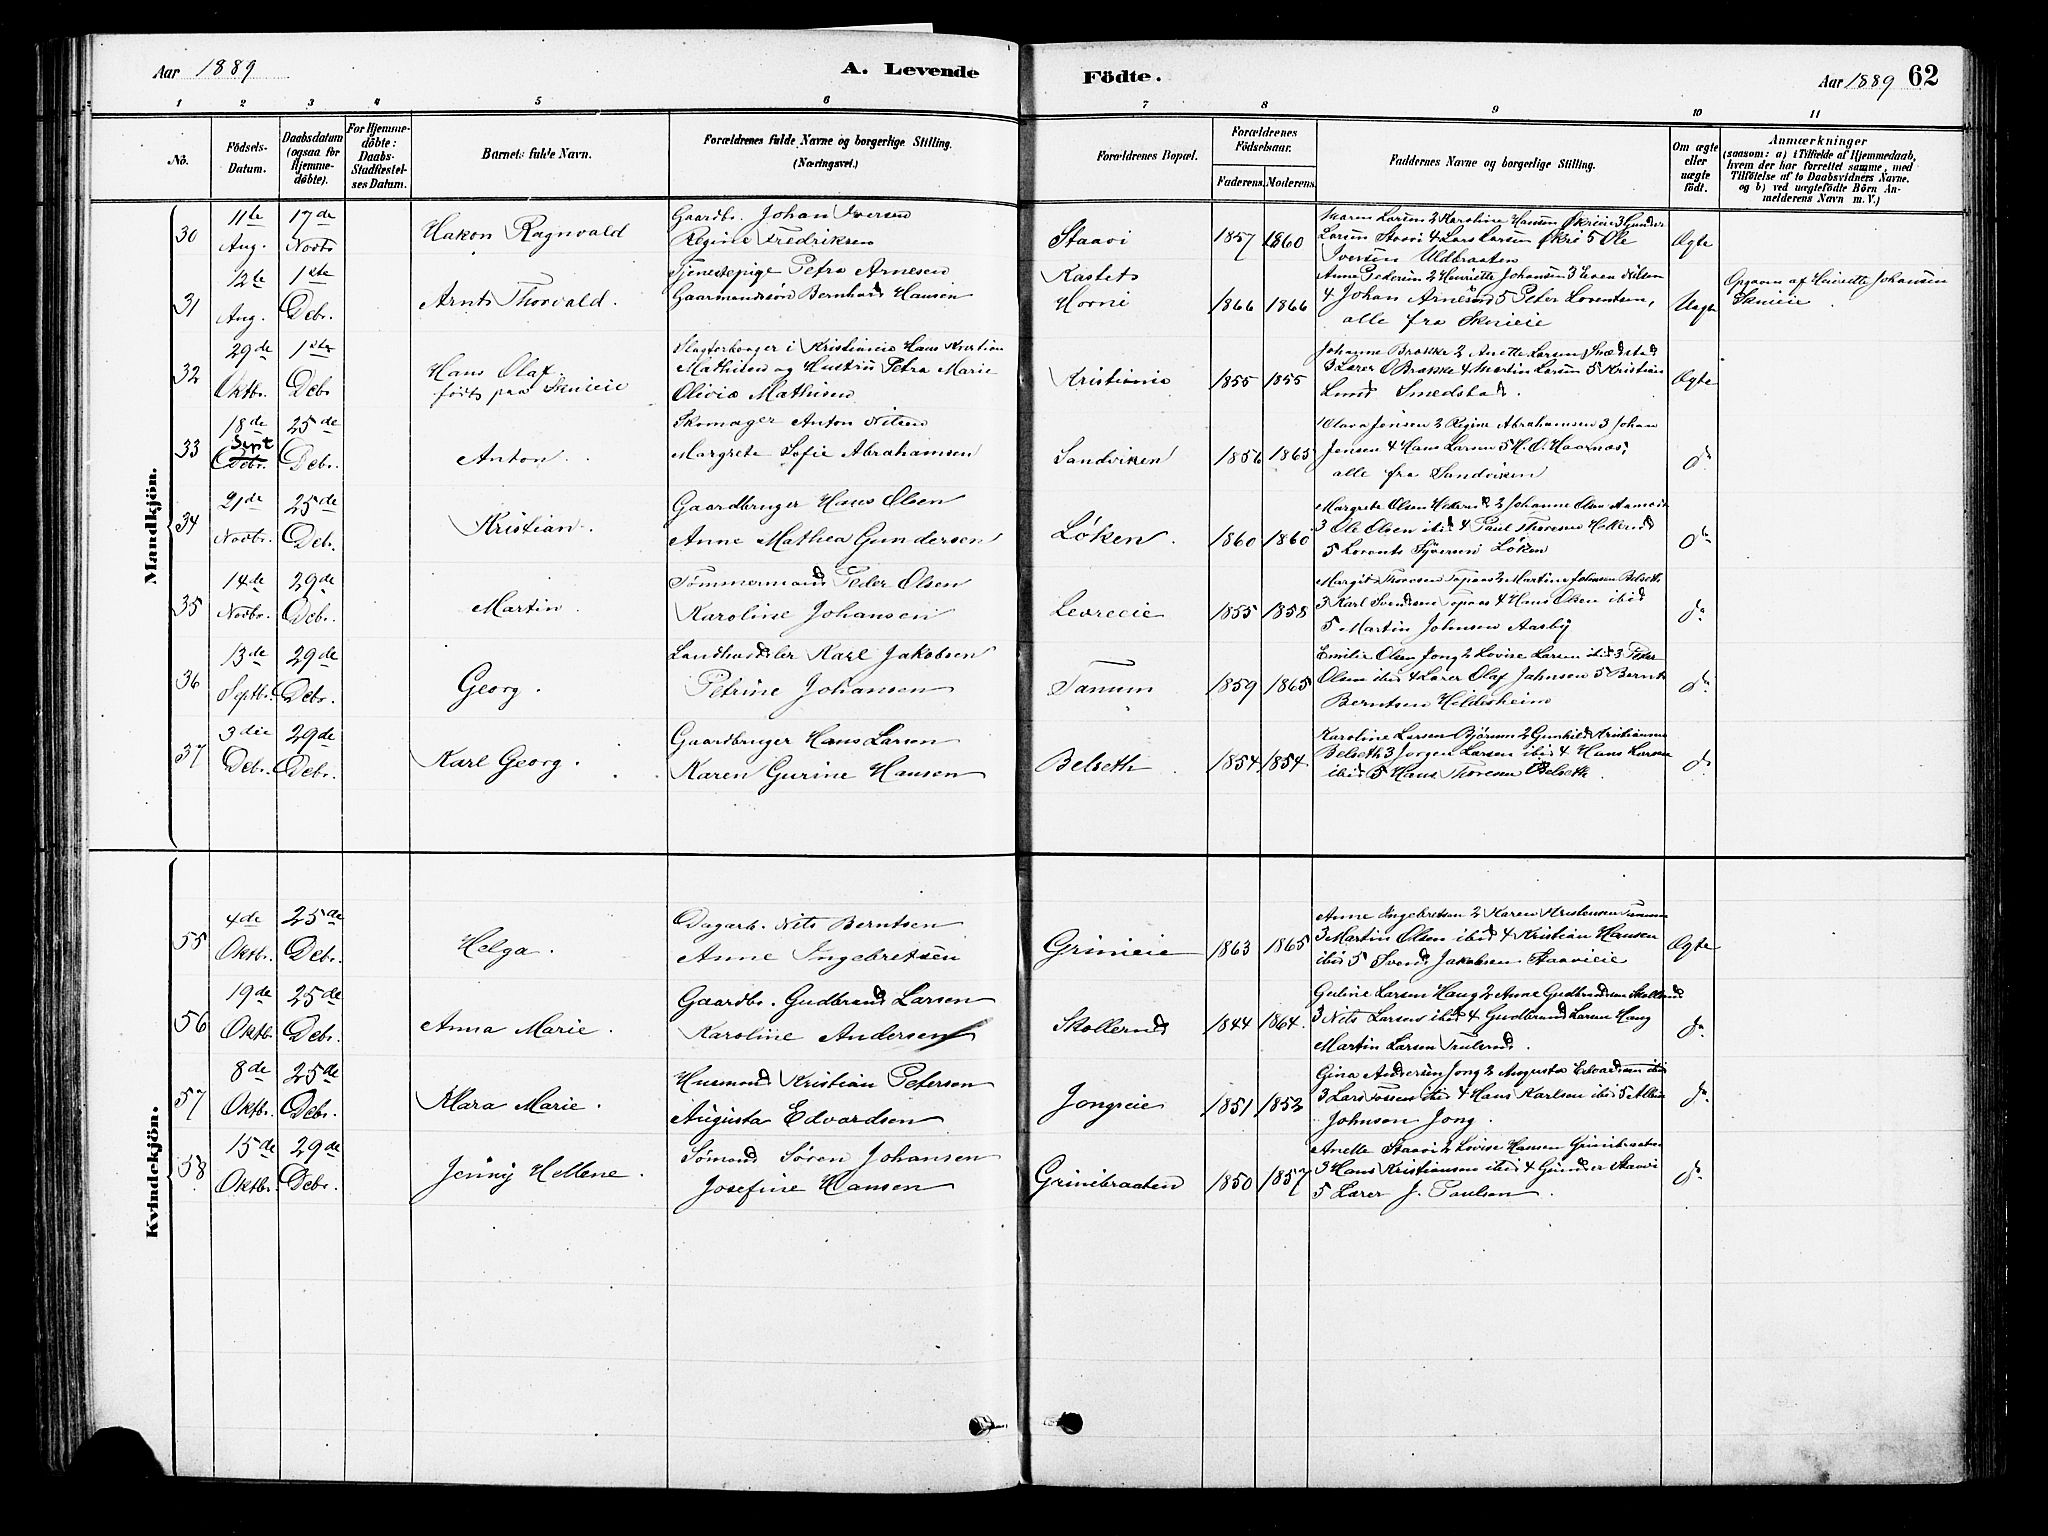 Aar 1889
A. Levende
Födte.
Aar 1889
62
1 2 3 4 5 6 7 8 9 10 11
No.
Födsels-
Datum.
Daabsdatum
(ogsaa for
Hjemme-
döbte).
For Hjemme-
döbte:
Daabs-
Stadfæstel-
ses Datum.
Barnets fulde Navn.
Forældrenes fulde Navne og borgerlige Stilling.
(Næringsvei.)
Forældrenes Bopæl.
Forældrenes
Födselsaar.
Faderens. Moderens.
Faddernes Navne og borgerlige Stilling.
Om ægte
eller
uægte
födt.
Anmærkninger
(saasom: a) i Tilfælde af Hjemmedaab,
hvem der har forrettet samme, med
Tilföielse af to Daabsvidners Navne.
og b) ved uægtefödte Börn An-
melderens Navn m. V.)
Mandkjön.
30
11te
Aug.
17de
Novbr
Hakon Ragnvald
Gaardbr. Johan Iversen
Regine Fredriksen
Staavi
1857 1860
Maren Larsen 2 Karoline Hansen Økrieie 3 Gunder
Larsen Staavi 4 Lars Larsen Økri 5 Ole
Iversen Uldbraaten
Ægte
31
12te
Aug.
1ste
Debr.
Arnt Thorvald.
Tjenestepige Petra Arnesen
Gaarmandssøn Bernhard Hansen
Kastet
Horni
1866 1866
Anne Pedersen 2 Henriette Johansen 3 Even Nilsen
4 Johan Arnesen 5 Peter Lorentsen,
alle fra Skuieie
Uægte
Opgaven af Henriette Johansen
Skuieie
32
29de
Oktbr.
1ste
Debr
Hans Olaf.
født paa Skuieie
Slagterborger i Kristiania Hans Kristian
Mathisen og Hustru Petra Marie
Olivia Mathisen
Kristiania
1855 1855
Johanne Brække 2 Anette Larsen Smedstad
3 Lærer O Brække 4 Martin Larsen 5 Kristian
Lund Smedstad.
Ægte
33
18de
Sept
Debr.
25de
Debr.
Anton.
Skomager Anton Nilsen
Margrete Sofie Abrahamsen
Sandviken
1856 1865
Olava Jensen 2 Regine Abrahamsen 3 Johan
Jensen 4 Hans Larsen 5 H. O. Haarnæs,
alle fra Sandviken
do
34
21de
Novbr.
25de
Debr.
Kristian.
Gaardbruger Hans Olsen
Anne Mathea Gundersen
Løken.
1860 1860
Margrete Olsen 2 Johanne Olsen
3 Ole Olsen ibid 4 Paul Thoresen
5 Lorents Syversen Løken
do
35
14de
Novbr.
29de
Debr.
Martin.
Tømmermand Peder Olsen
Karoline Johansen
Levreeie
1855 1858
Margit Thoresen Topaas 2 Martine Johnsen Belseth
3 Karl Svendsen Topaas 4 Hans Olsen ibid
5 Martin Johnsen Aasby
do
36
13de
Septbr.
29de
Debr.
Georg.
Landhandler Karl Jakobsen
Petrine Johansen
Tanum
1859 1865
Emilie Olsen Jong 2 Lovise Larsen ibid 3 Peter
Olsen ibid 4 Lærer Olaf Johnsen 5 Bernt
Berntsen Hildesheim
do
37
3die
Debr.
29de
Debr.
Karl Georg.
Gaardbruger Hans Larsen
Karen Gurine Hansen
Belseth
1854 1854
Karoline Larsen Bjørum 2 Gunhild Kristiansen
Belseth 3 Jørgen Larsen ibid 4 Hans Larsen
ibid 5 Hans Thoresen Belseth.
do
Kvindekjön.
55
4de
Oktbr.
25de
Debr.
Helga.
Dagarb. Nils Berntsen
Anne Ingebretsen
Grinieie
1863 1865
Anne Ingebretsen 2 Karen Kristensen Tanum
3 Martin Olsen ibid 4 Kristian Hansen
ibid 5 Svend Jakobsen Staavieie
Ægte
56
19de
Oktbr.
25de
Debr.
Anna Marie.
Gaardbr. Gudbrand Larsen
Karoline Andersen
Skollerud
1844 1864.
Guline Larsen Haug 2 Anne Gudbrandsen Skollerud
3 Nils Larsen ibid 4 Gudbrand Larsen Haug
Martin Larsen
do
57
8de
Oktbr.
25de
Debr.
Klara Marie.
Husmand Kristian Peterson
Augusta Edvardsen
Jongseie
1851 1852
Gina Andersen Jong 2 Augusta Edvardsen ibid
3 Lars ibid 4 Hans Karlsen ibid 5 Albin
Johnsen Jong.
do
58
15de
Oktbr.
29de
Debr.
Jenny Hellene.
Sømand Søren Johansen
Josefine Hansen
Grinibraaten
1850 1857
Anette Staavi 2 Lovise Hansen Grinibraaten
3 Hans Kristiansen ibid 4 Gunder Staavi
5 Lærer J. Paulson.
do